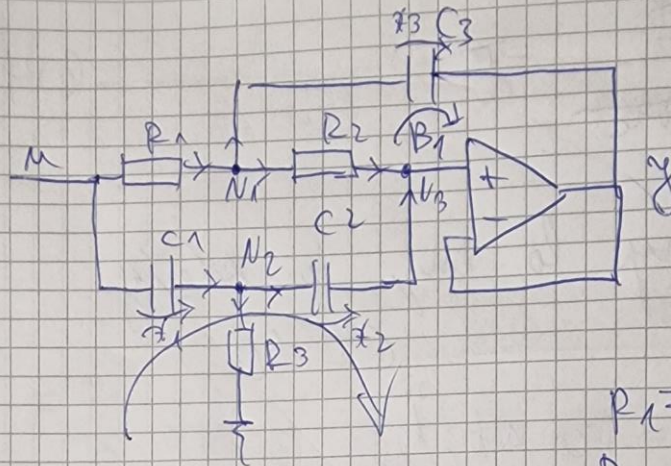 x3 C3
R1
R2
B1
u
N1
N3
+
y
-
C1
N2
C2
x1
x2
R3
R1=